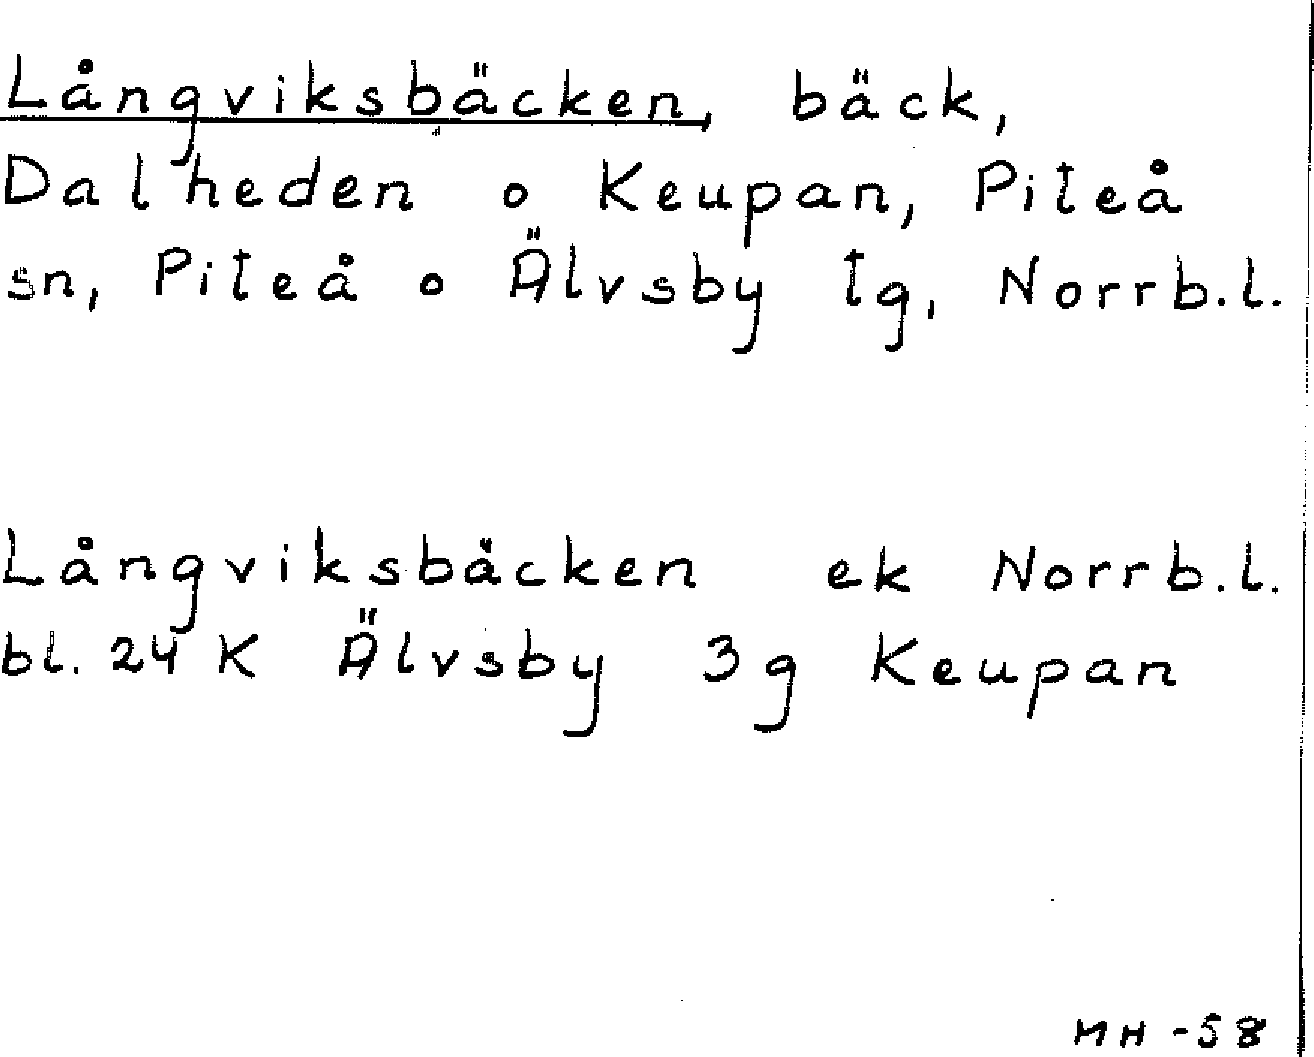 Långviksbäcken, bäck,
Dalheden o Keupan, Piteå
sn, Piteå o Älvsby tg, Norrb.l.
Långviksbäcken ek Norrb.l.
bl. 24 K Älvsby 3g Keupan
MH -58